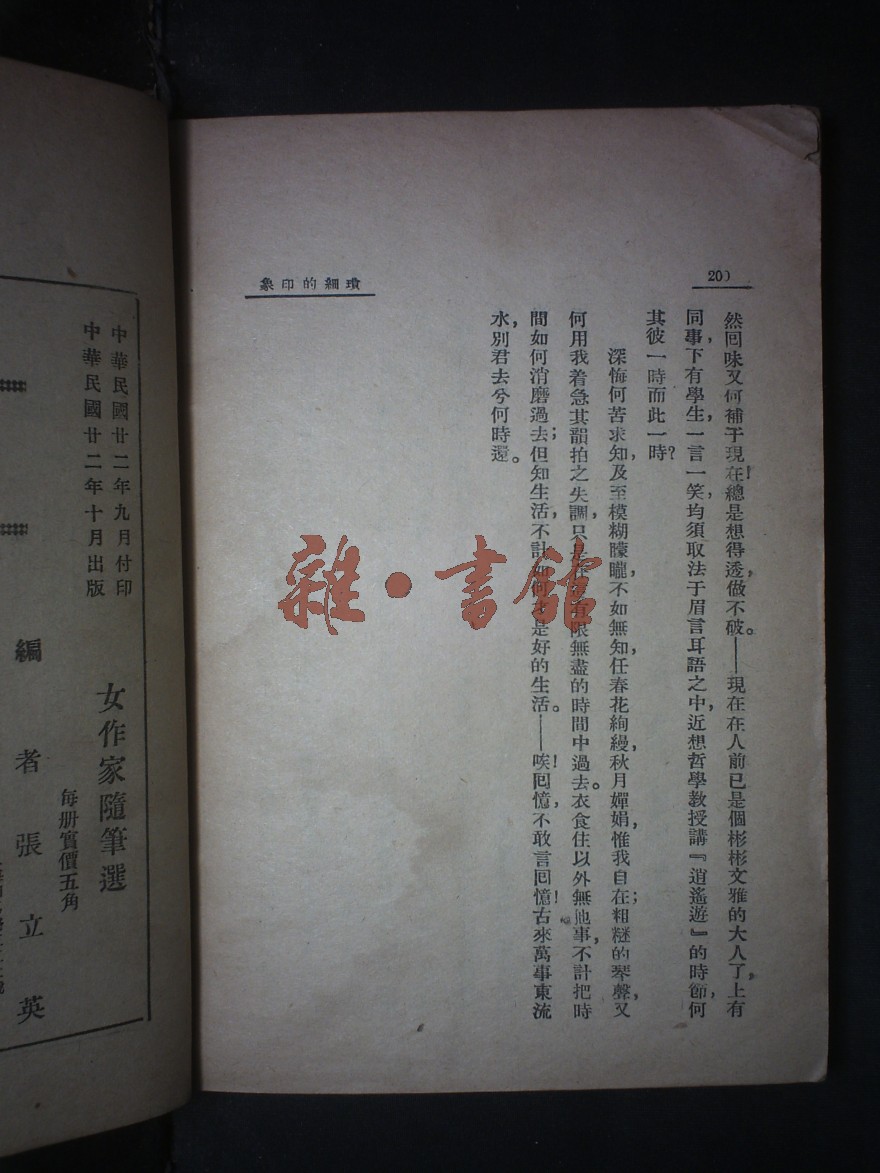 200
瑣細的印象
然回味又何補于現在!總是想得透,做不破。——現在在人前已是個彬彬文雅的大人了,上有
同事,下有學生,一言一笑,均須取法于眉言耳語之中,近想哲學教授講『逍遙遊』的時節,何
其彼一時而此一時?
深悔何苦求知,及至模糊矇矓,不如無知,任春花絢縵,秋月嬋娟,惟我自在;粗糙的琴聲,又
何用我着急其韻拍之失調,只是在有限無盡的時間中過去。衣食住以外無他事,不計把時
間如何消磨過去;但知生活,不計如何才是好的生活。——唉!回憶,不敢言回憶!古來萬事東流
水,別君去兮何時還。
雜·書館
中華民國廿二年九月付印
中華民國廿二年十月出版
女作家隨筆選
每册實價五角
編者 張立英